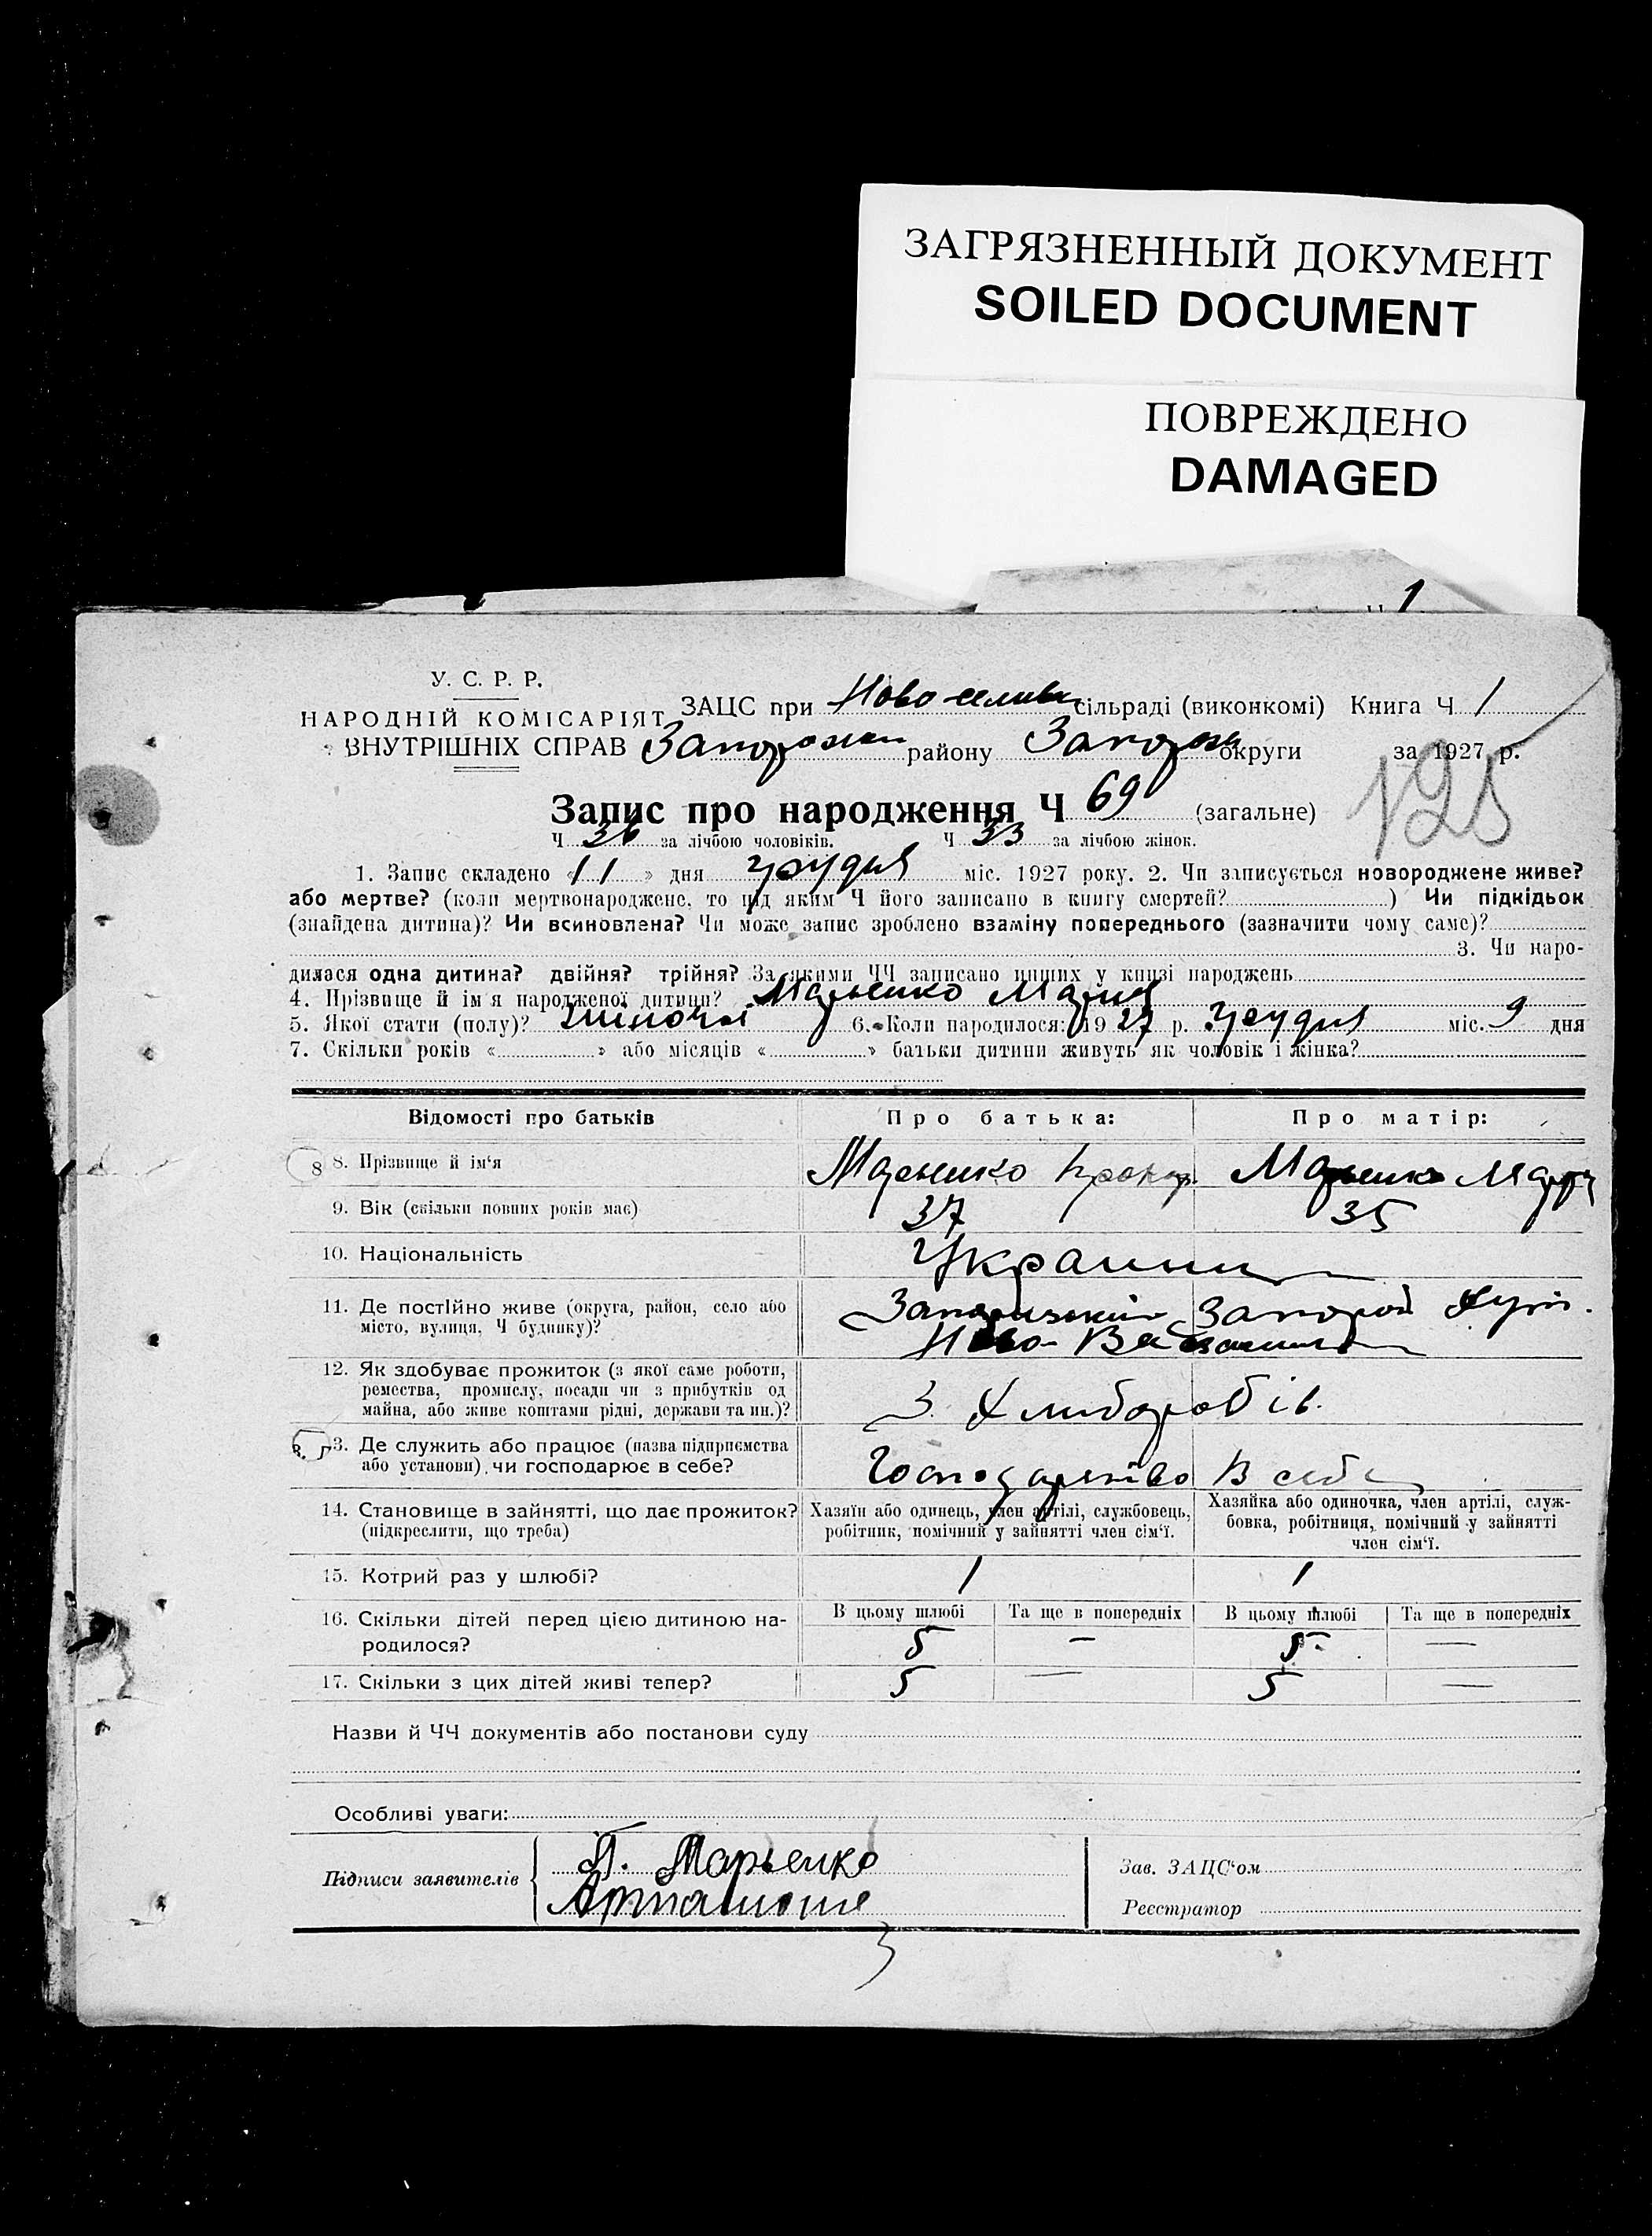 ЗАГРЯЗНЕННЫЙ ДОКУМЕНТ
SOILED DOCUMENT
ПОВРЕЖДЕНО
DAMAGED
1
У. С. Р. Р.
НАРОДНІЙ КОМІСАРІЯТ
ВНУТРІШНІХ СПРАВ
ЗАЦС при Ново сільраді (виконкомі) Книга Ч 1
району округи за 1927 р.
125
Запис про народження Ч 69 (загальне)
Ч 36 за лічбою чоловіків. Ч 33 за лічбою жінок.
1. Запис складено «11» дня грудня міс. 1927 року. 2. Чи записується новороджене живе?
або мертве? (коли мертвонароджене, то під яким Ч його записано в книгу смертей?) Чи підкідьок
(знайдена дитина)? Чи всиновлена? Чи може запис зроблено взаміну попереднього (зазначити чому саме)?
3. Чи наро-
дилася одна дитина? двійня? трійня? За якими ЧЧ записано инших у книзі народжень
4. Прізвище й ім'я народженої дитини? Марьенко Мария
5. Якої стати (полу)? жіночої 6. Коли народилося: 1927 р. Грудня міс. 9 дня
7. Скільки років « » або місяців « » батьки дитини живуть як чоловік і жінка?
Відомості про батьків Про батька: Про матір:
8 8. Прізвище й ім'я Марьенко Марьенко
9. Вік (скільки повних років має) 37 35
10. Національність
11. Де постійно живе (округа, район, село або
місто, вулиця, Ч будинку)?
Ново-
12. Як здобуває прожиток (з якої саме роботи,
ремества, промислу, посади чи з прибутків од
майна, або живе коштами рідні, держави та ин.)?
З Хлиборобів.
13. Де служить або працює (назва підприємства
або установи), чи господарює в себе?
В себе
14. Становище в зайнятті, що дає прожиток?
(підкреслити, що треба)
Хазяїн або одинець, член артілі, службовець,
робітник, помічний у зайнятті член сім'ї.
Хазяйка або одиночка, член артілі, служ-
бовка, робітниця, помічний у зайнятті
член сім'ї.
15. Котрий раз у шлюбі? 1 1
16. Скільки дітей перед цією дитиною на-
родилося?
В цьому шлюбі Та ще в попередніх В цьому шлюбі Та ще в попередніх
5 — 5 —
17. Скільки з цих дітей живі тепер? 5 — 5 —
Назви й ЧЧ документів або постанови суду
Особливі уваги:
Підписи заявителів П. Марьенко
Зав. ЗАЦС'ом
Реєстратор